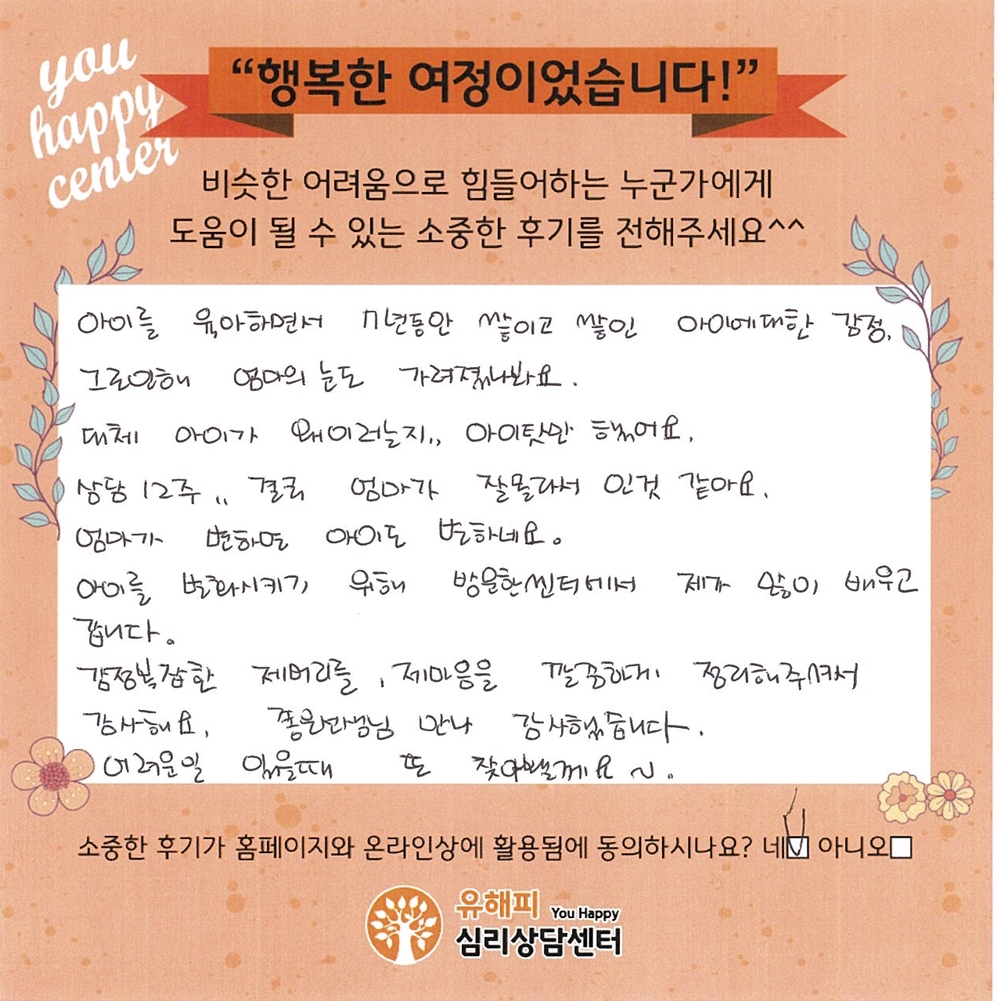 you
happy
center
“행복한 여정이었습니다!”
비슷한 어려움으로 힘들어하는 누군가에게
도움이 될 수 있는 소중한 후기를 전해주세요^^
아이를 육아하면서 7년동안 쌓이고 쌓인 아이에대한 감정,
그로인해 엄마의 눈도 가려졌나봐요.
대체 아이가 왜이러는지,, 아이탓만 했어요,
상담 12주 ,, 결국 엄마가 잘몰라서 인것 같아요,
엄마가 변하면 아이도 변하네요。
아이를 변화시키기 위해 방문한센터에서 제가 많이 배우고
갑니다。
감정복잡한 제머리를 , 제마음을 깔끔하게 정리해주셔서
감사해요, 좋은선생님 만나 감사했습니다.
어려운일 있을때 또 찾아뵐께요 ~.
소중한 후기가 홈페이지와 온라인상에 활용됨에 동의하시나요? 네☑ 아니오☐
유해피 You Happy
심리상담센터